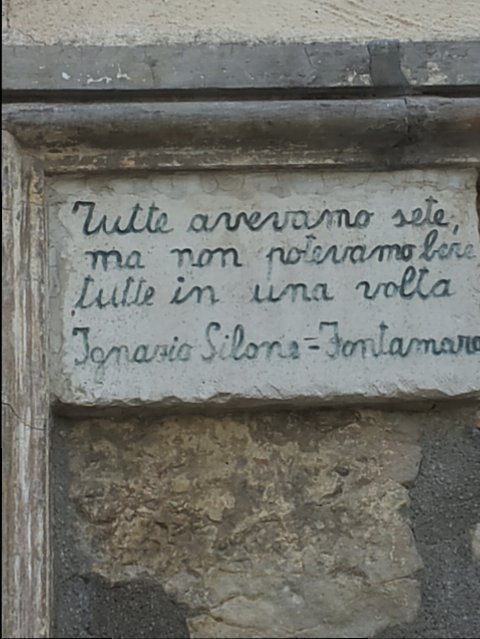 Tutte avevamo sete,
ma non potevamo bere
tutte in una volta
Ignazio Silone=Fontamara